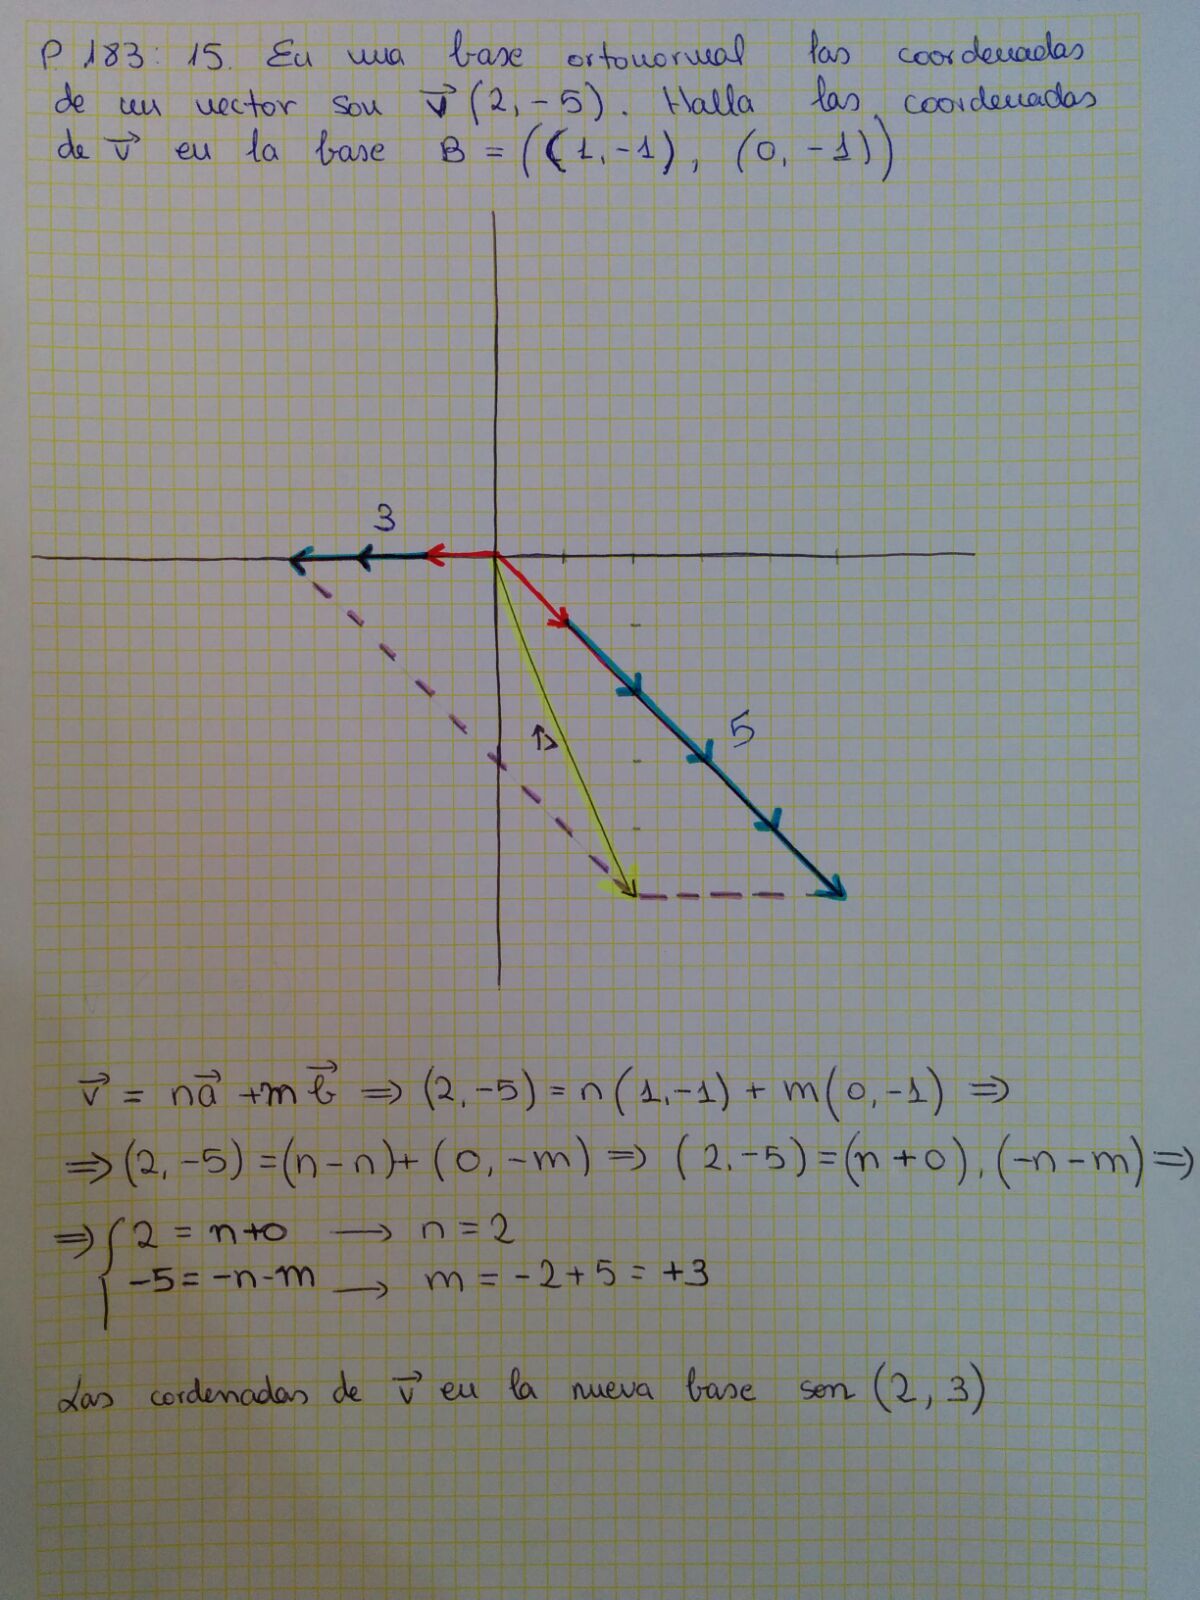 P 183: 15. En una base ortonormal las coordenadas
de un vector son v⃗ (2, -5). Halla las coordenadas
de v⃗ en la base B = ((1, -1), (0, -1))
3
5
v⃗
v⃗ = na⃗ + m b⃗ ⇒ (2, -5) = n(1, -1) + m(0, -1) ⇒
⇒ (2, -5) = (n - n) + (0, -m) ⇒ (2, -5) = (n + 0), (-n - m) ⇒
⇒ { 2 = n+0 → n = 2
-5 = -n-m → m = -2+5 = +3
Las cordenadas de v⃗ en la nueva base son (2, 3)